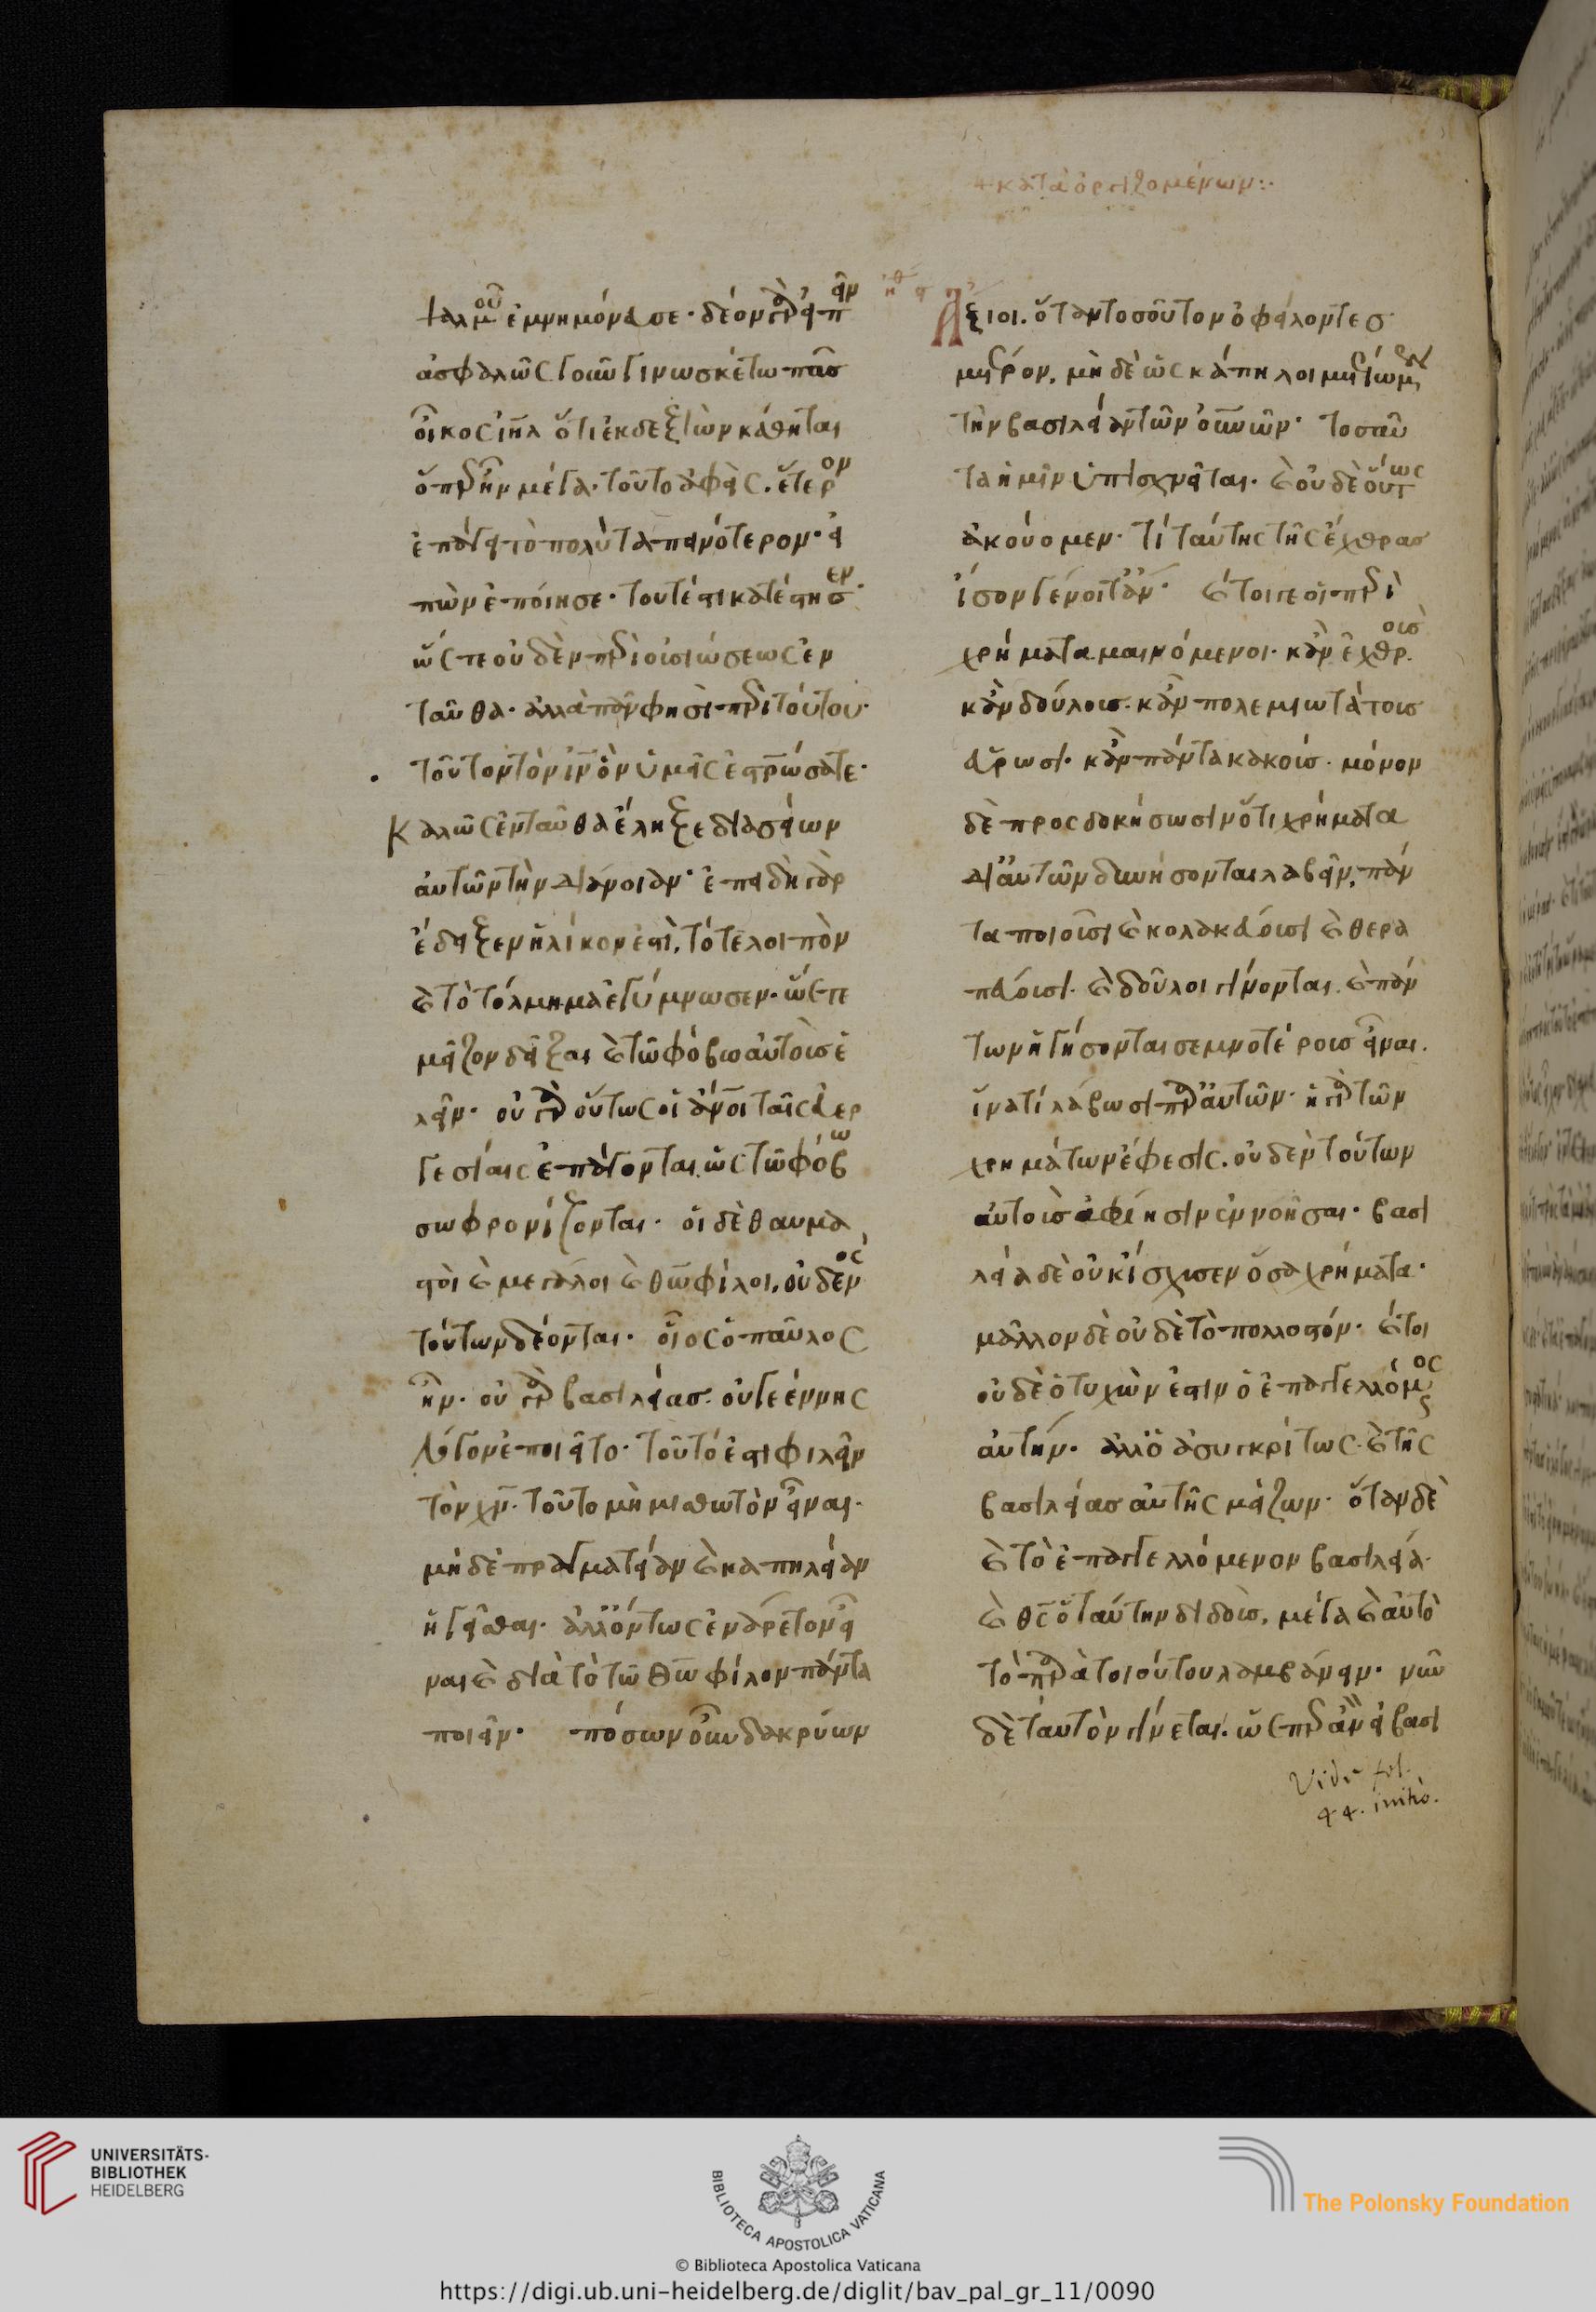 + κατὰ ὁρκιζομένων:·
ψαλμοῦ ἐμνημόνευσε· δέον γὰρ εἰπεῖν
ἀσφαλῶς γοῦν γινωσκέτω πᾶσ
οἶκος ιηλ ὅτι ἐκ δεξιῶν κάθηται
ὅπερ ἦν μέγα· τοῦτο ἀφεὶς. ἕτερον
ἐπάγει τὸ πολὺ ταπεινότερον· εἰ
πὼν ἐποίησε· τουτέστι κατέστησεν·
ὥςτε οὐδὲν περὶ οὐσιώσεως ἐν
ταῦθα· ἀλλὰ πᾶν φησὶ περὶ τούτου·
τοῦτον τὸν ιν ὃν ὑμεῖς ἐσταυρώσατε·
Καλῶς ἐνταῦθα ἔληξε διασείων
αὐτῶν τὴν διάνοιαν· ἐπειδὴ γὰρ
ἔδειξεν ἡλίκον ἐστὶ, τότε λοιπὸν
καὶ τὸ τόλμημα ἐγύμνωσεν· ὥςτε
μεῖζον δεῖξαι καὶ τῶ φόβω αὐτοὺσ ἑ
λεῖν· οὐ γὰρ οὕτως οἱ ἄνοι ταῖς εὐερ
γεσίαις ἐπάγονται, ὡς τῶ φόβω
σωφρονίζονται· οἱ δὲ θαυμα
στοὶ καὶ μεγάλοι καὶ θω φίλοι, οὐδενὸς
τούτων δέονται· οἷος ὁ παῦλος
ἦν· οὐ γὰρ βασιλείασ· οὐ γεέννης
λόγον ἐποιεῖτο· τοῦτό ἐστι φιλεῖν
τὸν χν· τοῦτο μὴ μισθωτὸν εἶναι·
μηδὲ πραγματείαν καὶ καπηλείαν
ἡγεῖσθαι· ἀλλ' ὄντως ἐνάρετον εἶ
ναι καὶ διὰ τὸ τῶ θω φίλον πάντα
ποιεῖν· πόσων οὖν δακρύων
ἠθ
Ἄξιοι. ὅταν τοσοῦτον ὀφείλοντεσ
μισθὸν, μηδὲ ὡς κάπηλοι μετίωμεν
τὴν βασιλείαν τῶν οὐνῶν· τοσαῦ
τα ἡμῖν ὑπισχνεῖται· καὶ οὐδὲ οὕτως
ἀκούομεν· τί ταύτης τῆς ἔχθρασ
ἴσον γένοιτ' ἂν· καίτοιγε οἱ περὶ
χρήματα μαινόμενοι· κἂν ἐχθροὶσ
κἂν δούλοισ· κἂν πολεμιωτάτοισ
εὕρωσι· κἂν πάντα κακοὶσ· μόνον
δὲ προςδοκήσωσιν ὅτι χρήματα
δι' αὐτῶν δυνήσονται λαβεῖν, πάν
τα ποιοῦσι καὶ κολακεύουσι καὶ θερα
πεύουσι· καὶ δοῦλοι γίνονται· καὶ πάν
των ἡγήσονται σεμνοτέρουσ εἶναι·
ἵνα τί λάβωσι παρ' αὐτῶν· ἡ γὰρ τῶν
χρημάτων ἔφεσις. οὐδὲν τούτων
αὐτοὺσ ἀφίησιν ἐννοῆσαι· βασι
λεία δὲ οὐκ ἴσχυσεν ὅσα χρήματα·
μᾶλλον δὲ οὐδὲ τὸ πολλοστόν· καίτοι
οὐδὲ ὁ τυχών ἐστιν ὁ ἐπαγγελλόμενος
αὐτήν· ἀλλ' ὁ ἀσυγκρίτως καὶ τῆς
βασιλείασ αὐτῆς μείζων· ὅταν δὲ
καὶ τὸ ἐπαγγελλόμενον βασιλεία·
καὶ θς ὁ ταύτην διδοὺσ, μέγα καὶ αὐτὸ
τὸ παρὰ τοιούτου λαμβάνειν· νῦν
δὲ ταυτὸν γίνεται· ὥςπερ ἂν εἰ βασι
Vide fol.
44. initio.
UNIVERSITÄTS-
BIBLIOTHEK
HEIDELBERG
BIBLIOTECA APOSTOLICA VATICANA
The Polonsky Foundation
© Biblioteca Apostolica Vaticana
https://digi.ub.uni-heidelberg.de/diglit/bav_pal_gr_11/0090